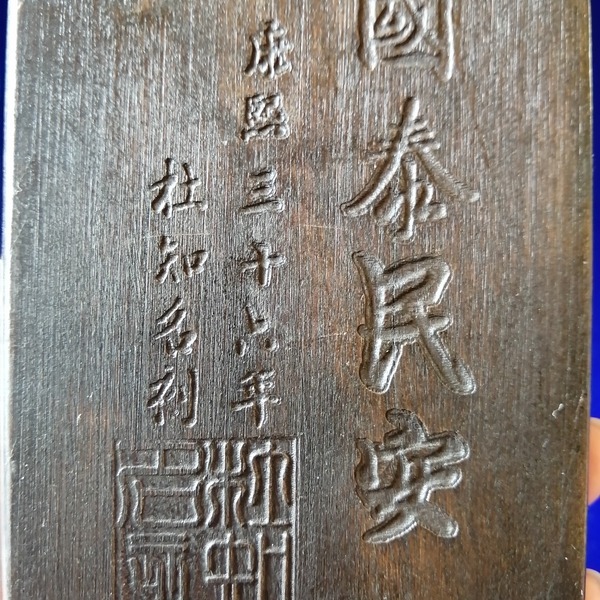 國泰民安
康熙三十六年
杜知名制